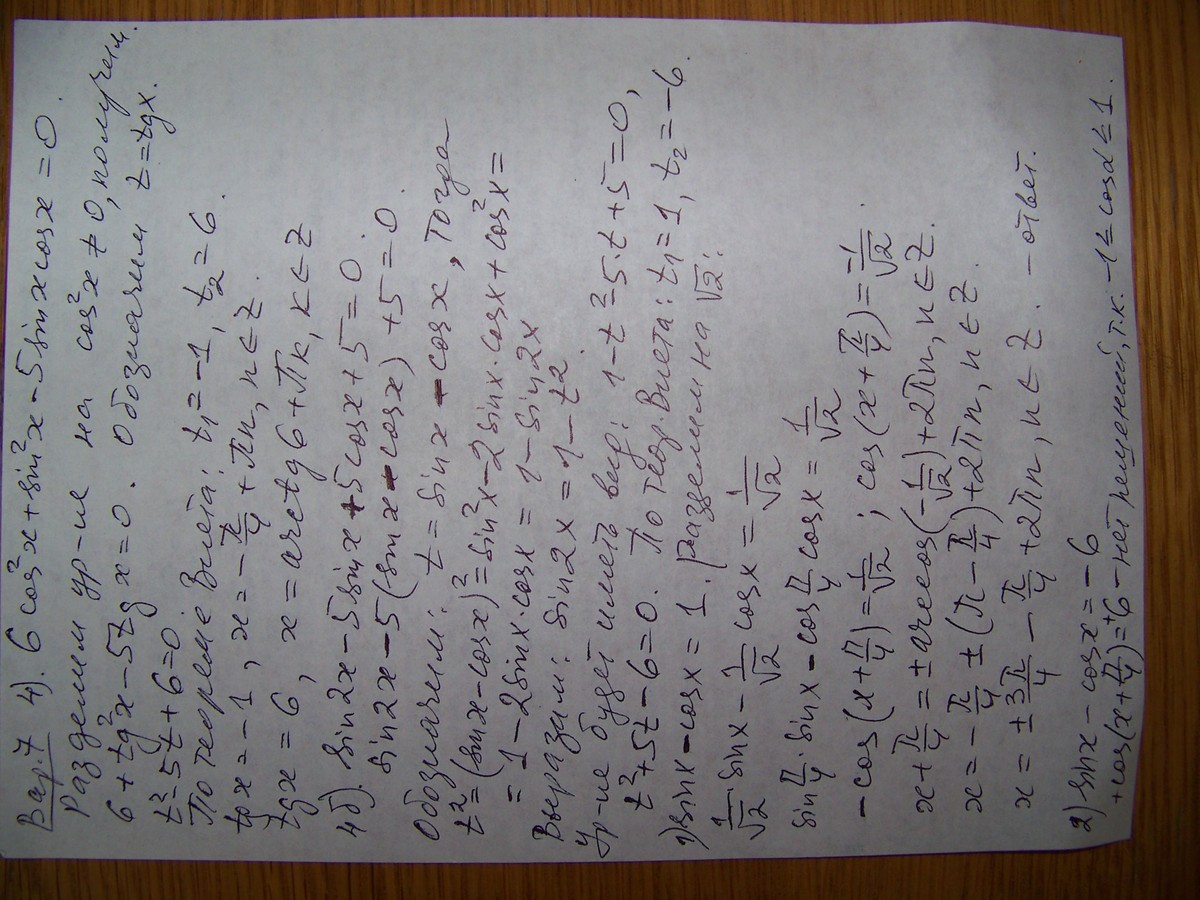 Вар.7 4). 6 cos²x + sin²x - 5 sin x cos x = 0.
Разделим ур-ие на cos²x ≠ 0, получим.
6 + tg²x - 5tg x = 0. Обозначим t = tgx.
t² - 5t + 6 = 0.
По теореме Виета: t₁ = -1, t₂ = 6.
tgx = -1, x = -π/4 + πn, n ∈ Z.
tgx = 6, x = arctg 6 + πk, k ∈ Z
4б). sin 2x - 5 sin x + 5 cos x + 5 = 0
sin 2x - 5 (sin x - cos x) + 5 = 0.
Обозначим: t = sin x - cos x, тогда
t² = (sin x - cos x)² = sin²x - 2 sin x · cos x + cos²x =
= 1 - 2 sin x · cos x = 1 - sin 2x
Выразим: sin 2x = 1 - t².
Ур-ие будет иметь вид: 1 - t² = 5·t + 5 = 0,
t² + 5t - 6 = 0. По теор. Виета: t₁ = 1, t₂ = -6.
1) sin x - cos x = 1. Разделим на √2:
1/√2 · sin x - 1/√2 cos x = 1/√2
sin π/4 · sin x - cos π/4 cos x = 1/√2
- cos (x + π/4) = 1/√2 ; cos (x + π/4) = -1/√2.
x + π/4 = ± arccos(-1/√2) + 2πn, n ∈ Z.
x = - π/4 ± (π - π/4) + 2πn, n ∈ Z.
x = ± 3π/4 - π/4 + 2πn, n ∈ Z. - ответ.
2) sin x - cos x = -6
+ cos(x + π/4) = +6 - нет решений, т.к. -1 ≤ cos α ≤ 1.